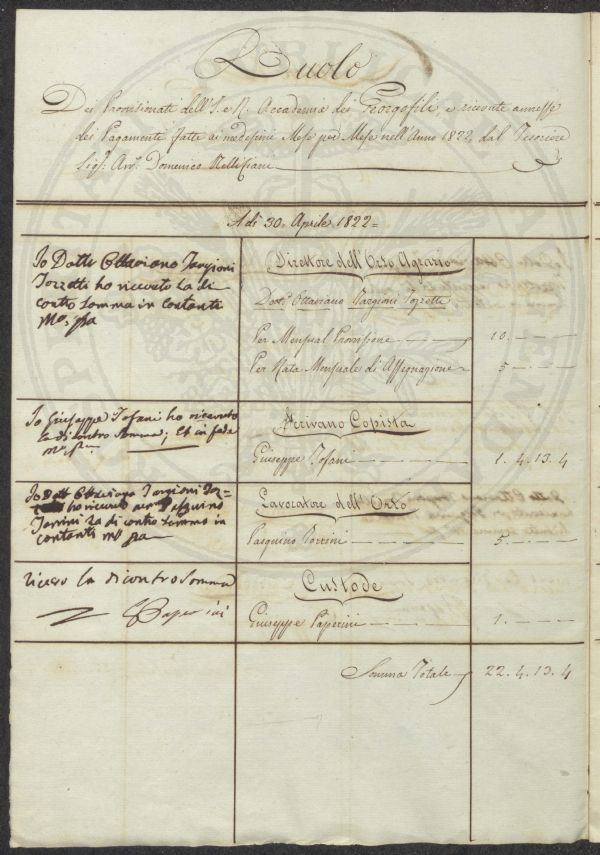 Ruolo
Dei Provisionati dell'I. e R. Accademia dei Georgofili, e ricevute annesse
dei Pagamenti fatti ai medesimi Mese per Mese nell'Anno 1822, dal Tesoriere
Sig.r Avv. Domenico
A dì 30. Aprile 1822=
Io Dott. Ottaviano Targioni
Tozzetti ho ricevuto la di
contro somma in contanti
mo. pa
Direttore dell'Orto Agrario
Dott. Ottaviano Targioni Tozzetti
Per Mensual Provisione 10. — — —
Per Rata Mensuale di Assegnazione 5 — — —
Io Giuseppe Tofani ho ricevuto
la di contro somma; et in fede
mo. pa.
Scrivano Copista
Giuseppe Tofani 1. 4. 13. 4
Io Dott Ottaviano Targioni Toz=
ho ricevuto Pasquino
Torrini la di contro somma in
contanti mo pa
Lavoratore dell'Orto
Pasquino Torrini 5. — — —
Ricevo la di contro somma
Paperini
Custode
Giuseppe Paperini 1. — — —
Somma Totale 22. 4. 13. 4